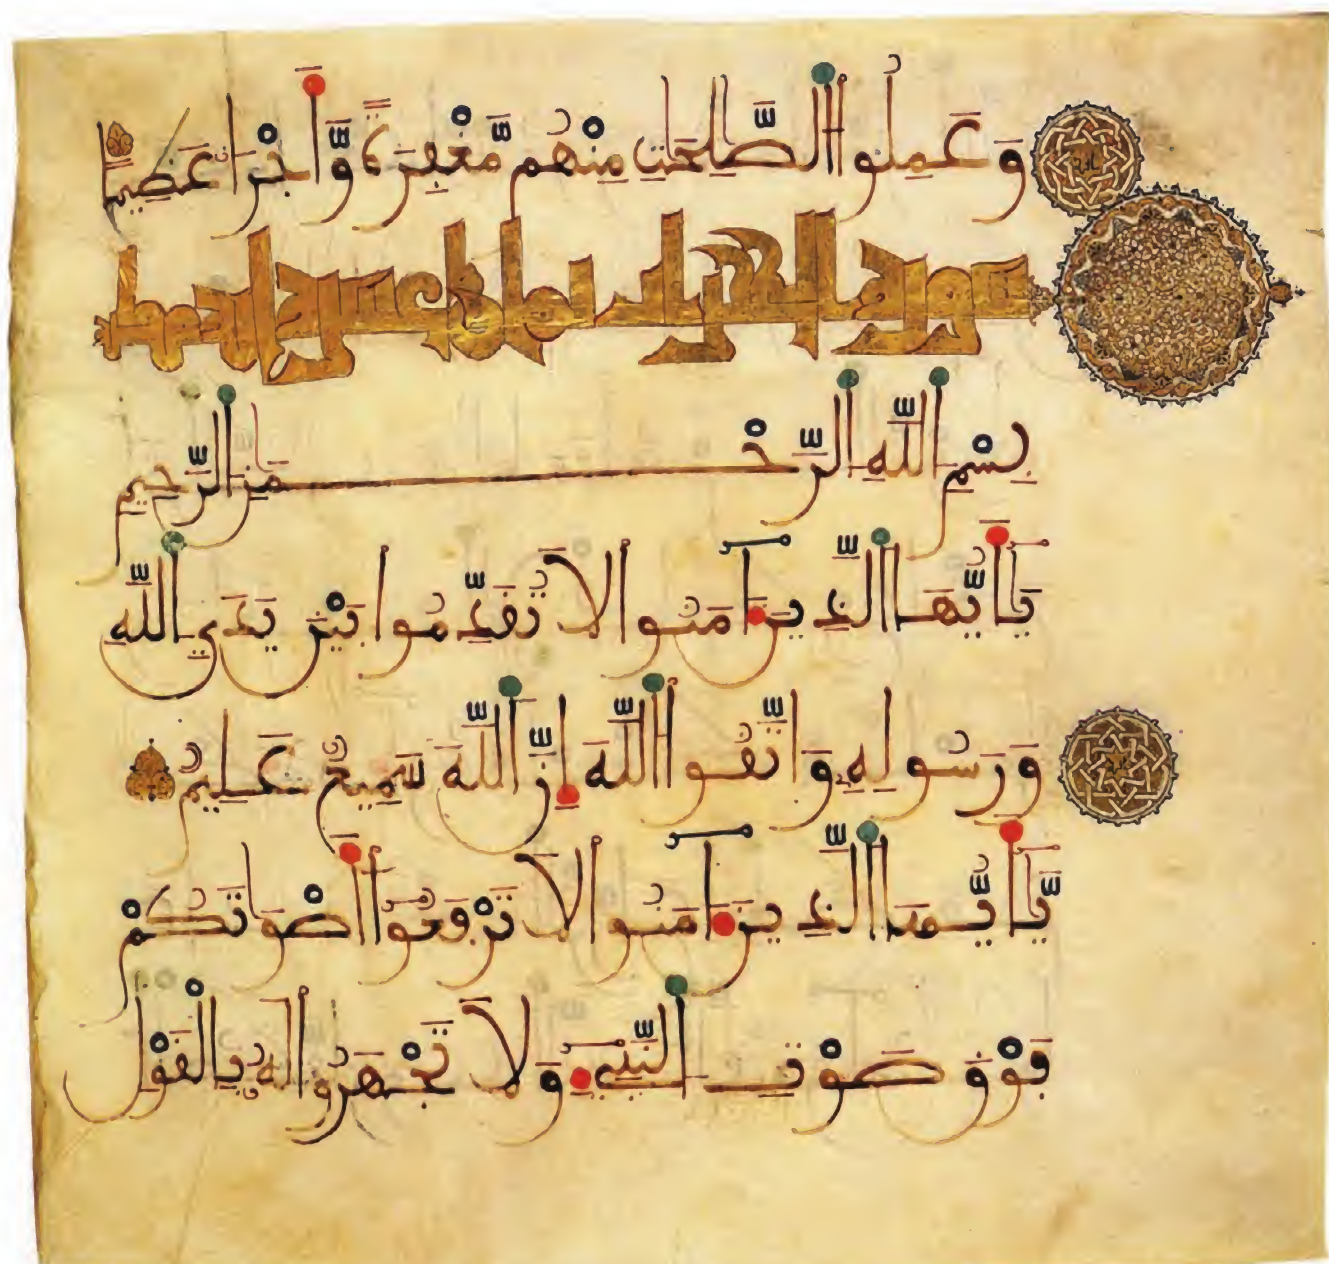 وَعَمِلُوا الصَّالِحَاتِ مِنْهُم مَّغْفِرَةً وَّأَجْرًا عَظِيمًا
سورة الحجرات
بِسْمِ اللَّهِ الرَّحْمَنِ الرَّحِيمِ
يَا أَيُّهَا الَّذِينَ آمَنُوا لَا تُقَدِّمُوا بَيْنَ يَدَيِ اللَّهِ
وَرَسُولِهِ وَاتَّقُوا اللَّهَ إِنَّ اللَّهَ سَمِيعٌ عَلِيمٌ
يَّا أَيُّهَا الَّذِينَ آمَنُوا لَا تَرْفَعُوا أَصْوَاتَكُمْ
فَوْقَ صَوْتِ النَّبِيءِ وَلَا تَجْهَرُوا لَهُ بِالْقَوْلِ